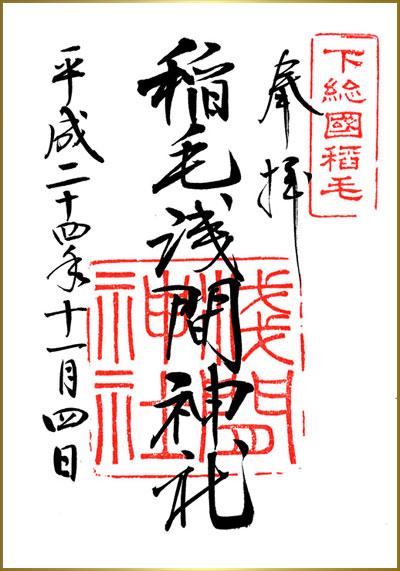 下総國稲毛
奉拝
稲毛浅間神社
淺間神社
平成二十四年十一月四日